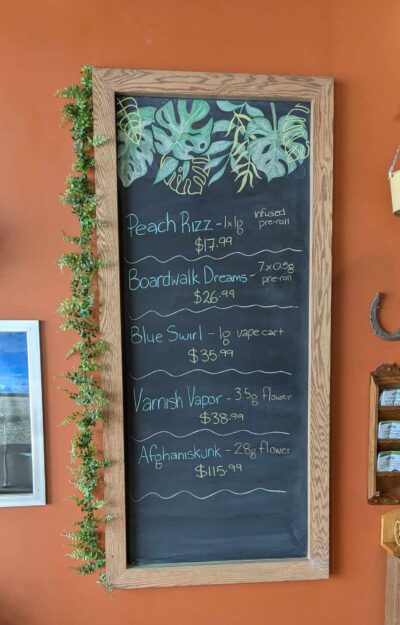 Peach Rizz - 1x1g infused pre-roll
$17.99
Boardwalk Dreams - 7x0.5g pre-roll
$26.99
Blue Swirl - 1g vape cart
$35.99
Varnish Vapor - 3.5g flower
$38.99
Afghaniskunk - 28g flower
$115.99